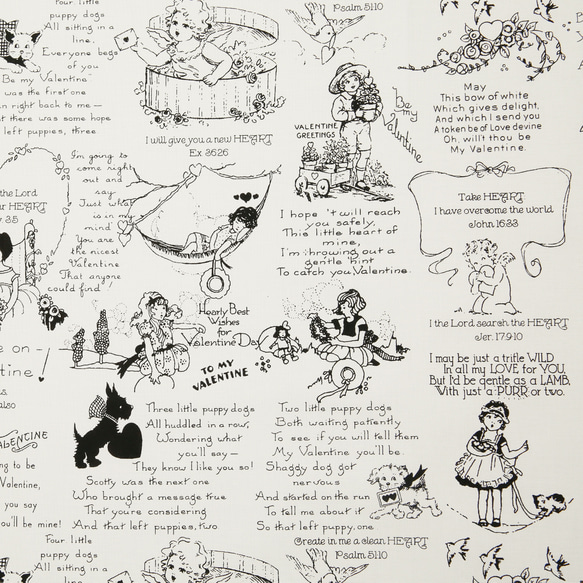 Four little
puppy dogs
All sitting in a
line,
Everyone begs
of you
Be my Valentine
was the first one
n right back to me —
t there was some hope
left puppies, three
I will give you a new HEART
Ex 36:26
Psalm 51:10
VALENTINE
GREETINGS
Be
my
Valentine
May
This bow of white
Which gives delight,
And which I send you
A token be of Love devine
Oh, will't thou be
My Valentine.
I'm going to
come right
out and
say
Just what
is in my
mind
You are
the nicest
Valentine
That anyone
could find
the Lord
HEART
35
I hope 't will reach
you safely,
This little heart of
mine,
I'm throwing out a
gentle hint
To catch you, Valentine.
Take HEART
I have overcome the world
John 16:33
I the Lord search the HEART
Jer. 17:9-10
Hearty Best
Wishes
for
Valentine Day
TO MY
VALENTINE
e on —
tine!
also
I may be just a trifle WILD
In all my LOVE for YOU,
But I'd be gentle as a LAMB,
With just a PURR or two.
Three little puppy dogs
All huddled in a row,
Wondering what
you'll say —
They know I like you so!
Scotty was the next one
Who brought a message true
That you're considering
And that left puppies, two
Two little puppy dogs
Both waiting patiently
To see if you will tell them
My Valentine you'll be.
Shaggy dog got
nervous
And started on the run
To tell me about it
So that left puppy, one
VALENCINE
ng to be
Valentine,
you say
ou'll be mine!
Create in me a clean HEART
Psalm 51:10
Four little
puppy dogs
All sitting in a